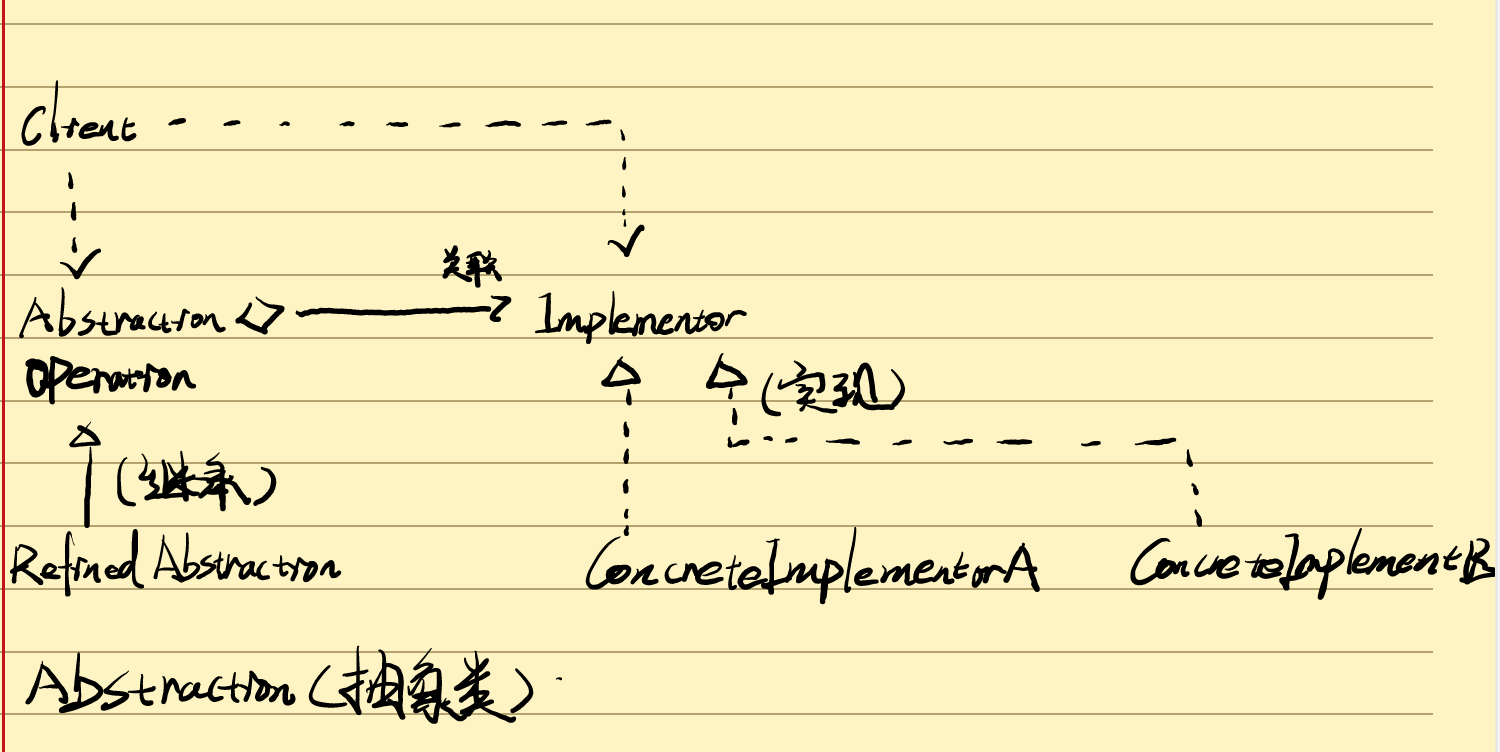 Client
关联
Abstraction Implementor
Operation
(实现)
(继承)
Refined Abstraction ConcreteImplementorA ConcreteImplementB
Abstraction (抽象类)